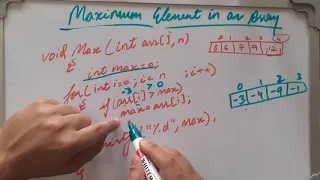 Maximum Element in an Array
void Max (int arr[], n)
{
int max=0;
for(int i=0; i<n ; i++)
{
-3 > 0
if (arr[i] > max)
max = arr[i];
"%d", max);
}
4
8 6 7 9 12
0 1 2 3
-3 -4 -9 -1